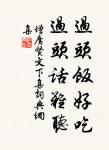 過頭飯好吃
過頭話難聽
增廣賢文下集詞典網
集